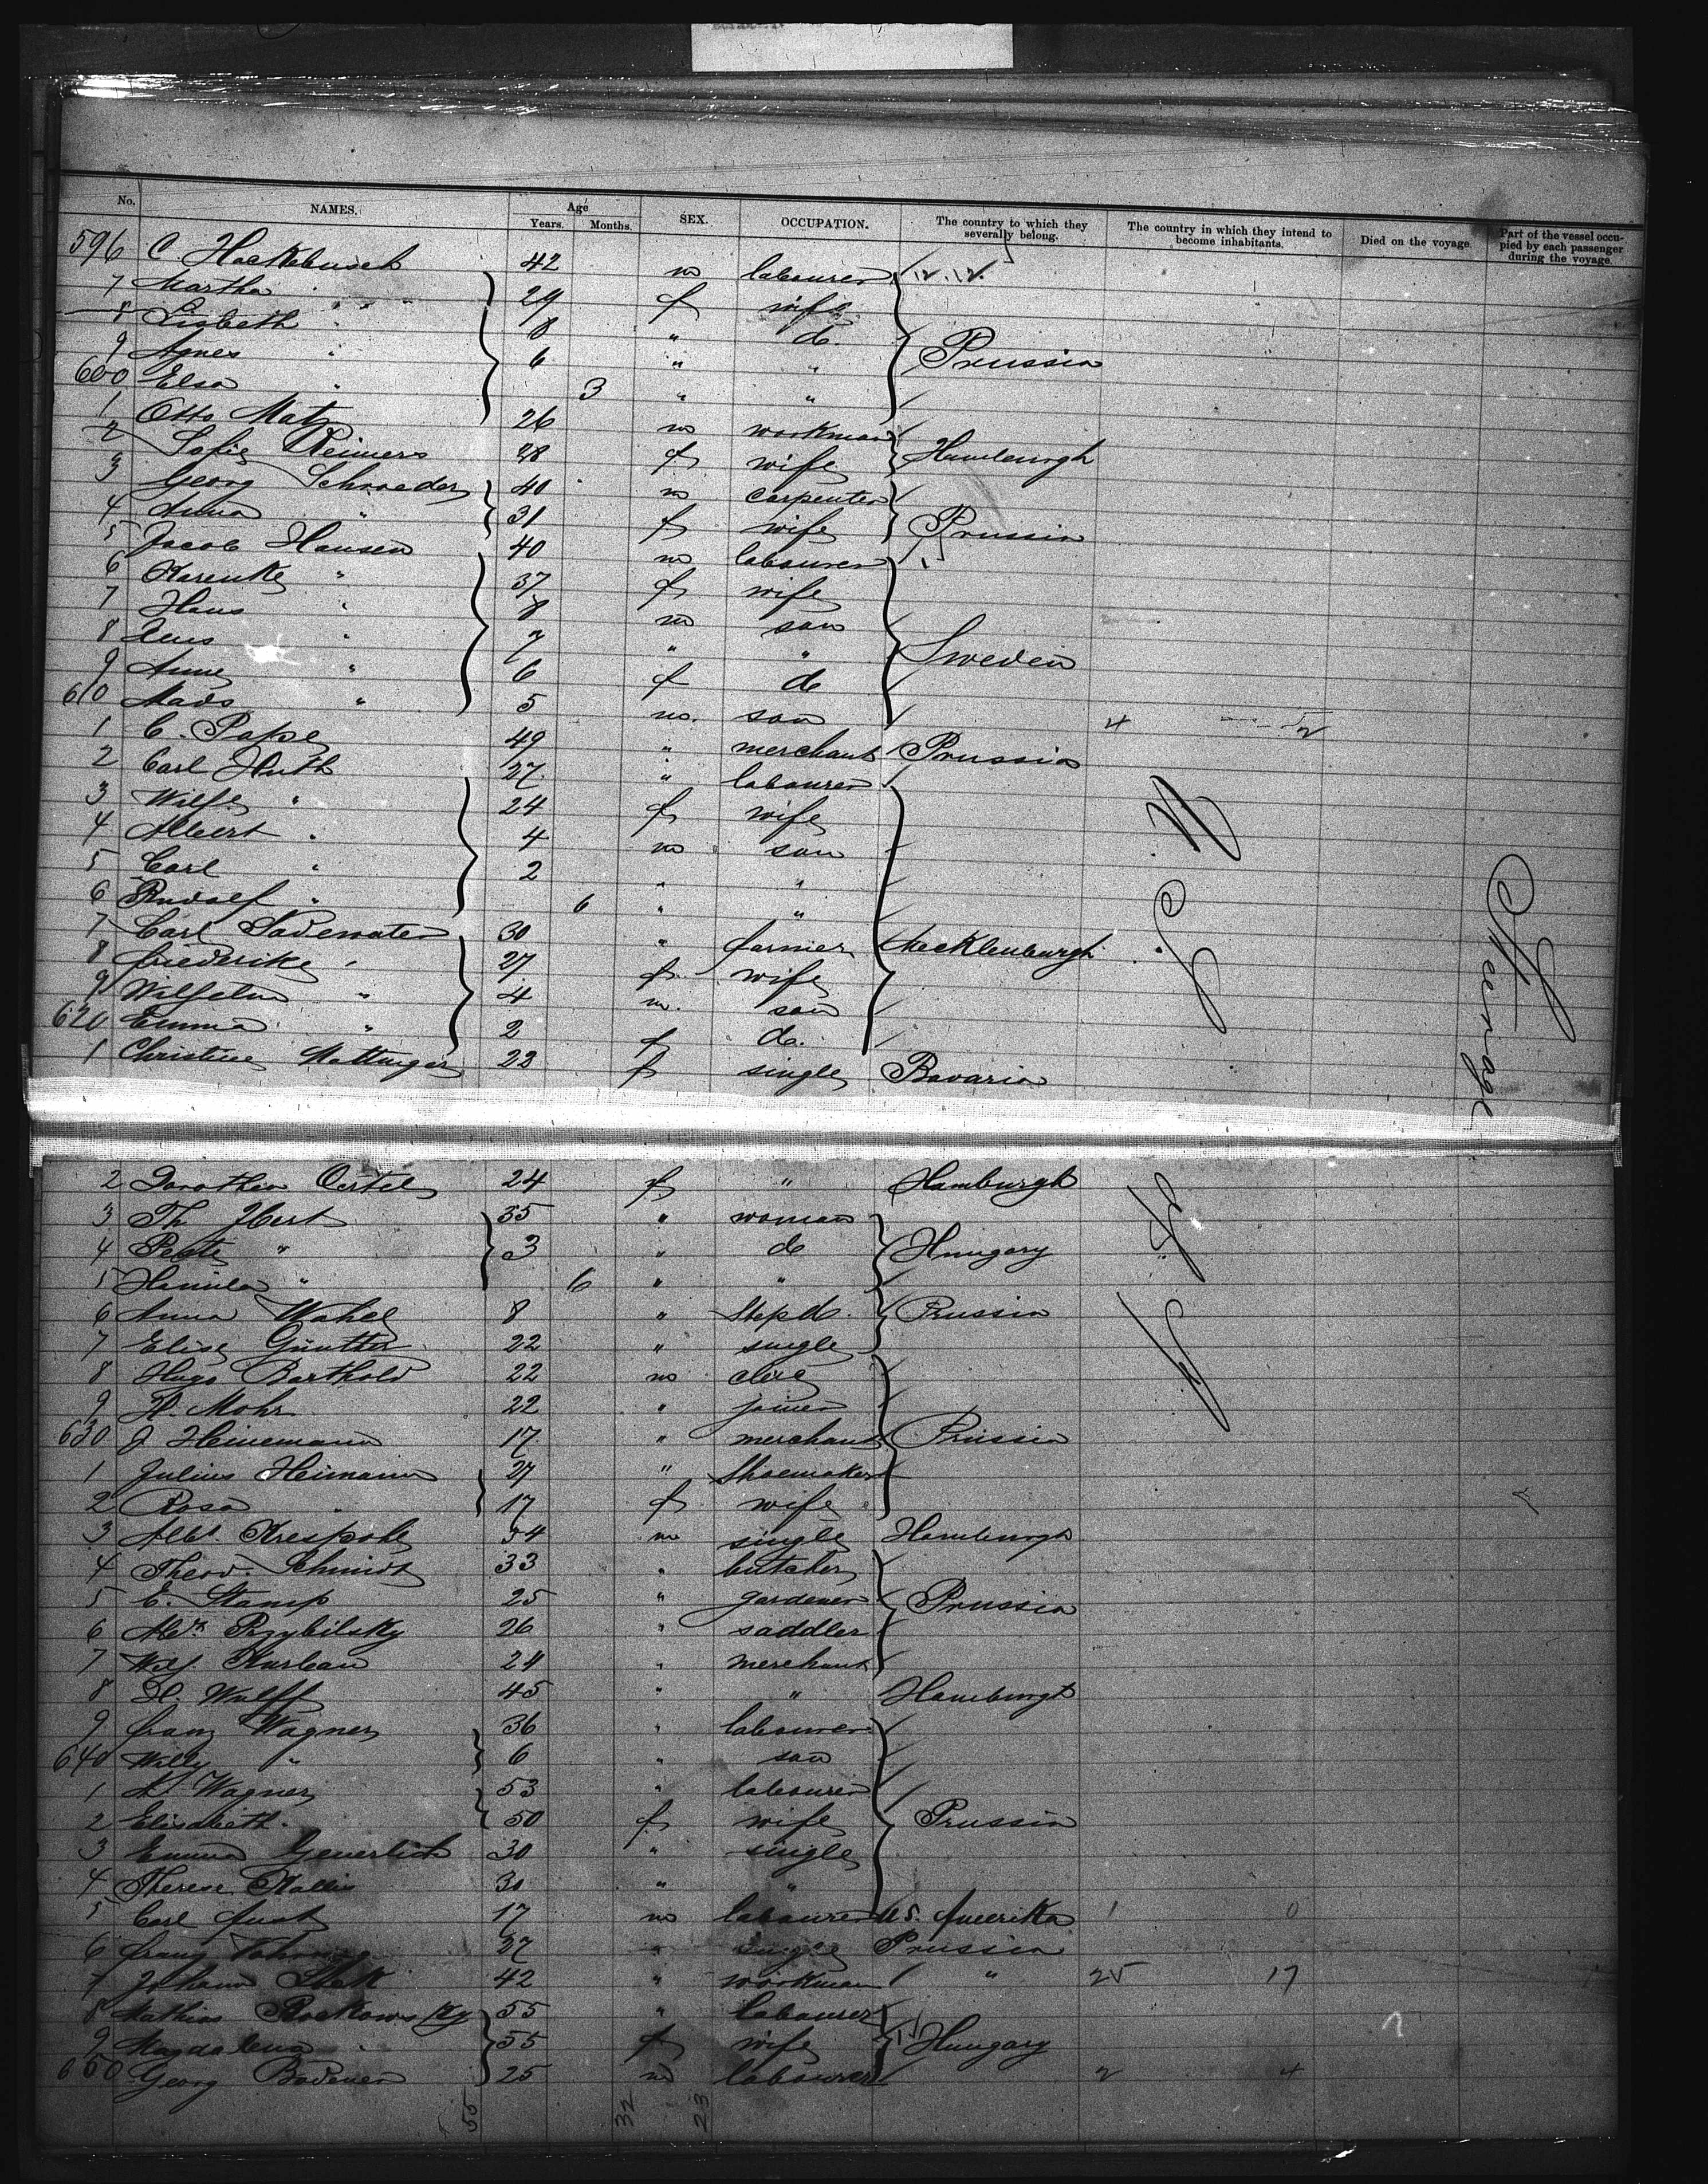 No. NAMES. Age Years. Months. SEX. OCCUPATION. The country to which they severally belong. The country in which they intend to become inhabitants. Died on the voyage. Part of the vessel occupied by each passenger during the voyage.
596 C. Hackebusch 42 m labourer
7 Martha " 29 f wife
8 Lisbeth " 8 " do
9 Agnes " 6 " " Prussia
600 Elsa " 3 " "
1 Otto Matz 26 m workman
2 Sofie Reimers 28 f wife Hamburgh
3 Georg Schroeder 40 m carpenter
4 Anna " 31 f wife Prussia
5 Jacob Hansen 40 m labourer
6 " 37 f wife
7 Hans " 8 m son
8 Jens " 7 " " Sweden
9 Anne " 6 f do
610 Mads " 5 m. son 4
1 C. Pape 49 " merchant Prussia
2 Carl Huth 27 " labourer
3 Wilhe " 24 f wife
4 Albert " 4 m son
5 Carl " 2 " "
6 Rudolf " 6 " "
7 Carl Sadewater 30 " farmer Mecklenburgh
8 Friederike " 27 f wife
9 Wilhelm " 4 m. son
620 Emma " 2 f do.
1 Christine 22 f single Bavaria
N. Y. Steerage
2 Dorothea Oertel 24 f " Hamburgh
3 Th. 35 " woman
4 " 3 " do Hungary
5 " 6 " "
6 Anna 8 " Stepd. Prussia
7 Elise Günther 22 " single
8 Hugo Barthold 22 m
9 H. Mohr 22 " joiner
630 J Heinemann 17 " merchant Prussia
1 Julius Heimann 27 " Shoemaker
2 Rosa " 17 f wife
3 Albt. 34 m single Hamburgh
4 Theod. Schmidt 33 " butcher
5 E. Stamp 25 " gardener Prussia
6 Przybilsky 26 " saddler
7 24 " merchant
8 H. Wulff 45 " " Hamburgh
9 Franz Wagner 36 " labourer
640 Willy " 6 " son
1 Wagner 53 " labourer
2 Elisabeth " 50 f wife Prussia
3 Emma 30 " single
4 Therese 30 " "
5 Carl 17 m labourer U.S. Amerika 1 0
6 Franz 27 " single Prussia
7 Johann 42 " workman " 25 17
8 Mathias 55 " labourer
9 Magdalena " 55 f wife Hungary
650 Georg 25 m labourer 2 4
55 32 23